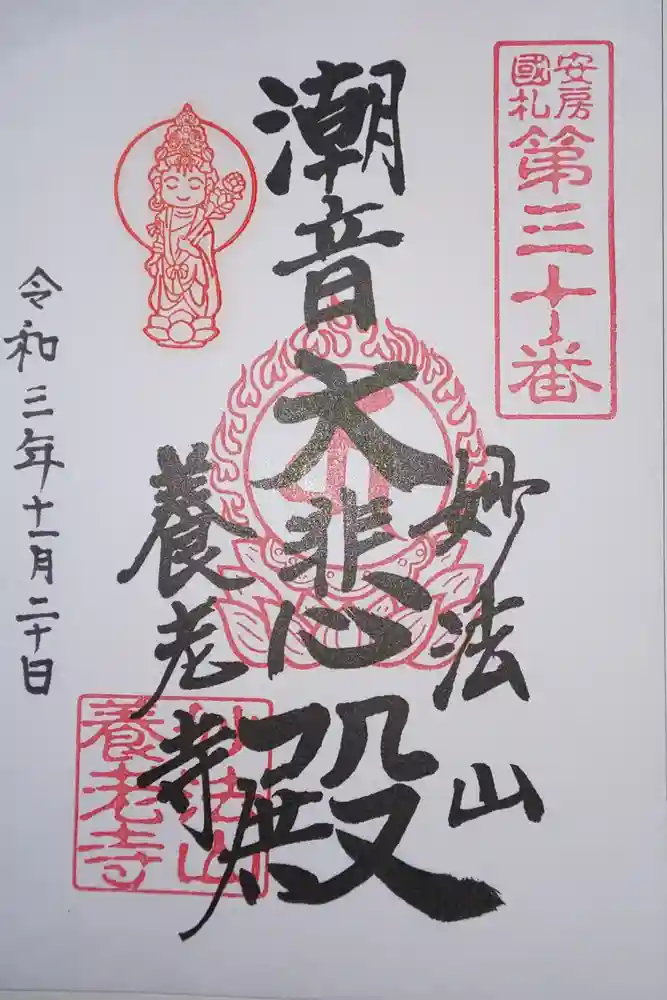 安房
國札
第三十番
妙法山
潮音
大悲殿
養老寺
令和三年十一月二十日
妙法山
養老寺